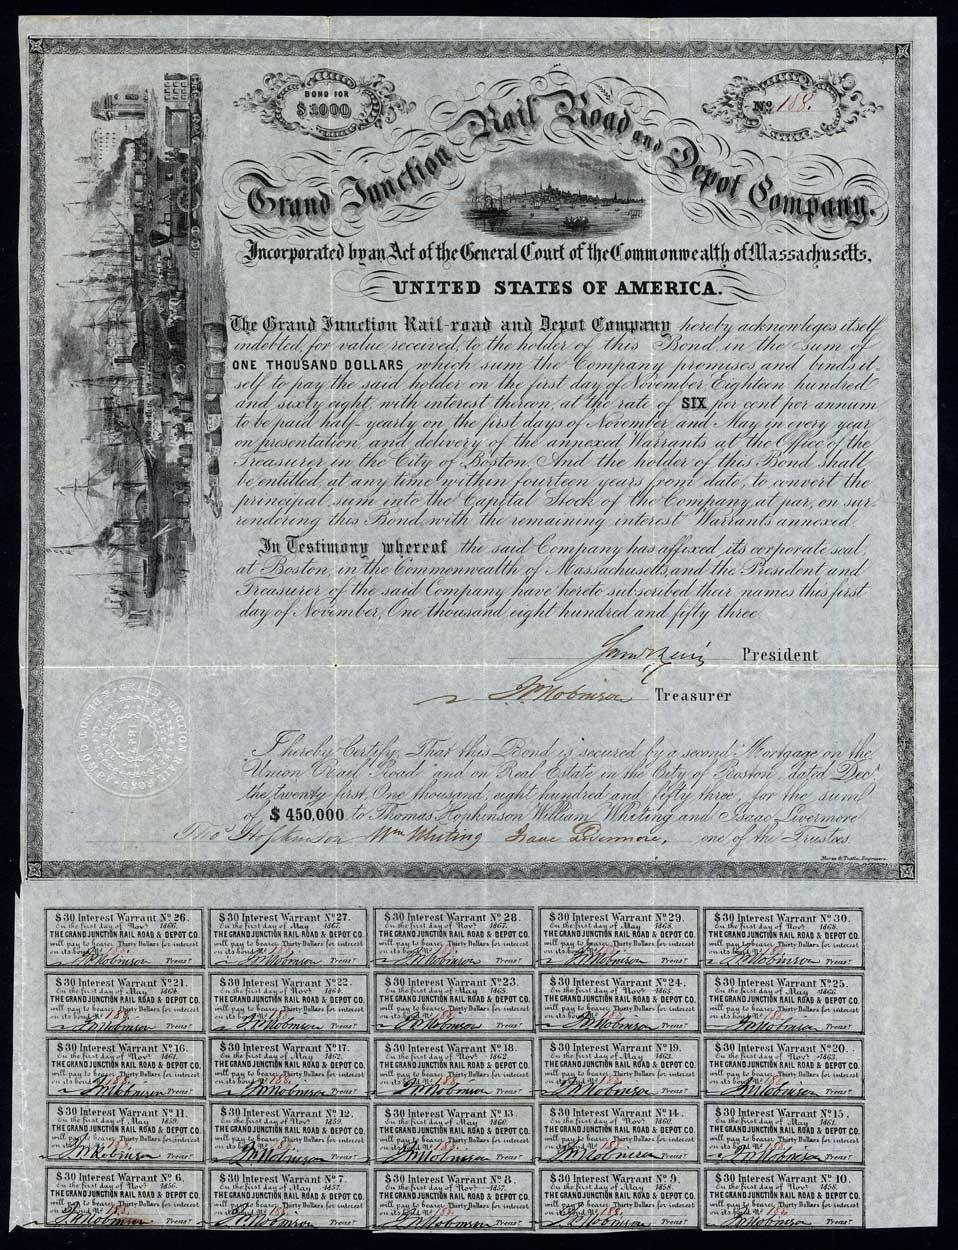 BOND FOR
$1000
No. 188.
Grand Junction Rail Road and Depot Company.
Incorporated by an Act of the General Court of the Commonwealth of Massachusetts,
UNITED STATES OF AMERICA.
The Grand Junction Rail-road and Depot Company hereby acknowleges itself
indebted, for value received, to the holder of this Bond, in the sum of
ONE THOUSAND DOLLARS which sum the Company promises and binds it-
self to pay the said holder on the first day of November Eighteen hundred
and sixty eight, with interest thereon, at the rate of SIX per cent per annum
to be paid half-yearly on the first days of November, and May in every year
on presentation, and delivery of the annexed Warrants at the Office of the
Treasurer in the City of Boston. And the holder of this Bond shall
be entitled, at any time within fourteen years from date, to convert the
principal sum into the Capital Stock of the Company at par, on sur-
rendering this Bond, with the remaining interest Warrants annexed.
In Testimony whereof the said Company has affixed its corporate seal,
at Boston, in the Commonwealth of Massachusetts, and the President and
Treasurer of the said Company have hereto subscribed their names this first
day of November, One thousand eight hundred and fifty three
President
J. M. Robinson Treasurer
GRAND JUNCTION RAIL ROAD
1847
I hereby Certify, That this Bond is secured by a second Mortgage on the
"Union Rail Road" and on Real Estate in the City of Boston, dated Decr.
the twenty first, One thousand, eight hundred and fifty three, for the sum
of $450,000 to Thomas Hopkinson William Whiting and Isaac Livermore
Tho's Hopkinson Wm Whiting Isaac Livermore, one of the Trustees.
$30 Interest Warrant No. 26. $30 Interest Warrant No. 27. $30 Interest Warrant No. 28. $30 Interest Warrant No. 29. $30 Interest Warrant No. 30.
On the first day of Novr. 1866. On the first day of May 1867. On the first day of Novr. 1867. On the first day of May 1868. On the first day of Novr. 1868.
THE GRAND JUNCTION RAIL ROAD & DEPOT CO. THE GRAND JUNCTION RAIL ROAD & DEPOT CO. THE GRAND JUNCTION RAIL ROAD & DEPOT CO. THE GRAND JUNCTION RAIL ROAD & DEPOT CO. THE GRAND JUNCTION RAIL ROAD & DEPOT CO.
will pay to bearer Thirty Dollars for interest will pay to bearer Thirty Dollars for interest will pay to bearer Thirty Dollars for interest will pay to bearer Thirty Dollars for interest will pay to bearer Thirty Dollars for interest
on its bond No. 188. on its bond No. 188. on its bond No. 188. on its bond No. 188. on its bond No. 188.
J. M. Robinson Treasr. J. M. Robinson Treasr. J. M. Robinson Treasr. J. M. Robinson Treasr. J. M. Robinson Treasr.
$30 Interest Warrant No. 21. $30 Interest Warrant No. 22. $30 Interest Warrant No. 23. $30 Interest Warrant No. 24. $30 Interest Warrant No. 25.
On the first day of May 1864. On the first day of Novr. 1864. On the first day of May 1865. On the first day of Novr. 1865. On the first day of May 1866.
THE GRAND JUNCTION RAIL ROAD & DEPOT CO. THE GRAND JUNCTION RAIL ROAD & DEPOT CO. THE GRAND JUNCTION RAIL ROAD & DEPOT CO. THE GRAND JUNCTION RAIL ROAD & DEPOT CO. THE GRAND JUNCTION RAIL ROAD & DEPOT CO.
will pay to bearer Thirty Dollars for interest will pay to bearer Thirty Dollars for interest will pay to bearer Thirty Dollars for interest will pay to bearer Thirty Dollars for interest will pay to bearer Thirty Dollars for interest
on its bond No. 188. on its bond No. 188. on its bond No. 188. on its bond No. 188. on its bond No. 188.
J. M. Robinson Treasr. J. M. Robinson Treasr. J. M. Robinson Treasr. J. M. Robinson Treasr. J. M. Robinson Treasr.
$30 Interest Warrant No. 16. $30 Interest Warrant No. 17. $30 Interest Warrant No. 18. $30 Interest Warrant No. 19. $30 Interest Warrant No. 20.
On the first day of Novr. 1861. On the first day of May 1862. On the first day of Novr. 1862. On the first day of May 1863. On the first day of Novr. 1863.
THE GRAND JUNCTION RAIL ROAD & DEPOT CO. THE GRAND JUNCTION RAIL ROAD & DEPOT CO. THE GRAND JUNCTION RAIL ROAD & DEPOT CO. THE GRAND JUNCTION RAIL ROAD & DEPOT CO. THE GRAND JUNCTION RAIL ROAD & DEPOT CO.
will pay to bearer Thirty Dollars for interest will pay to bearer Thirty Dollars for interest will pay to bearer Thirty Dollars for interest will pay to bearer Thirty Dollars for interest will pay to bearer Thirty Dollars for interest
on its bond No. 188. on its bond No. 188. on its bond No. 188. on its bond No. 188. on its bond No. 188.
J. M. Robinson Treasr. J. M. Robinson Treasr. J. M. Robinson Treasr. J. M. Robinson Treasr. J. M. Robinson Treasr.
$30 Interest Warrant No. 11. $30 Interest Warrant No. 12. $30 Interest Warrant No. 13. $30 Interest Warrant No. 14. $30 Interest Warrant No. 15.
On the first day of May 1859. On the first day of Novr. 1859. On the first day of May 1860. On the first day of Novr. 1860. On the first day of May 1861.
THE GRAND JUNCTION RAIL ROAD & DEPOT CO. THE GRAND JUNCTION RAIL ROAD & DEPOT CO. THE GRAND JUNCTION RAIL ROAD & DEPOT CO. THE GRAND JUNCTION RAIL ROAD & DEPOT CO. THE GRAND JUNCTION RAIL ROAD & DEPOT CO.
will pay to bearer Thirty Dollars for interest will pay to bearer Thirty Dollars for interest will pay to bearer Thirty Dollars for interest will pay to bearer Thirty Dollars for interest will pay to bearer Thirty Dollars for interest
on its bond No. 188. on its bond No. 188. on its bond No. 188. on its bond No. 188. on its bond No. 188.
J. M. Robinson Treasr. J. M. Robinson Treasr. J. M. Robinson Treasr. J. M. Robinson Treasr. J. M. Robinson Treasr.
$30 Interest Warrant No. 6. $30 Interest Warrant No. 7. $30 Interest Warrant No. 8. $30 Interest Warrant No. 9. $30 Interest Warrant No. 10.
On the first day of Novr. 1856. On the first day of May 1857. On the first day of Novr. 1857. On the first day of May 1858. On the first day of Novr. 1858.
THE GRAND JUNCTION RAIL ROAD & DEPOT CO. THE GRAND JUNCTION RAIL ROAD & DEPOT CO. THE GRAND JUNCTION RAIL ROAD & DEPOT CO. THE GRAND JUNCTION RAIL ROAD & DEPOT CO. THE GRAND JUNCTION RAIL ROAD & DEPOT CO.
will pay to bearer Thirty Dollars for interest will pay to bearer Thirty Dollars for interest will pay to bearer Thirty Dollars for interest will pay to bearer Thirty Dollars for interest will pay to bearer Thirty Dollars for interest
on its bond No. 188. on its bond No. 188. on its bond No. 188. on its bond No. 188. on its bond No. 188.
J. M. Robinson Treasr. J. M. Robinson Treasr. J. M. Robinson Treasr. J. M. Robinson Treasr. J. M. Robinson Treasr.